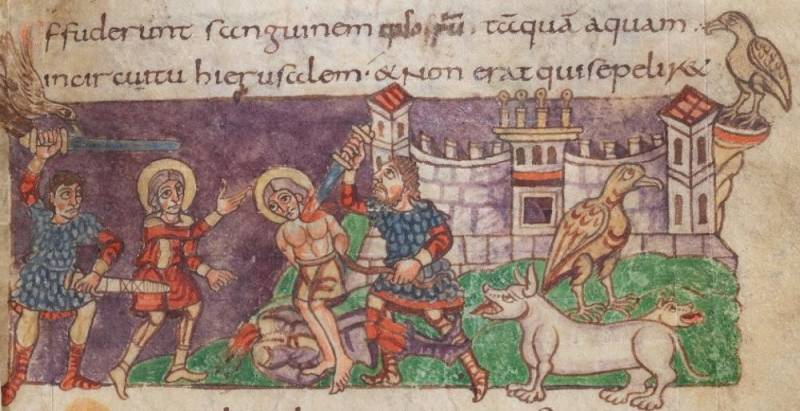 ffuderunt sanguinem tāquā aquam
incircuitu hierusalem · & non erat qui sepelir&